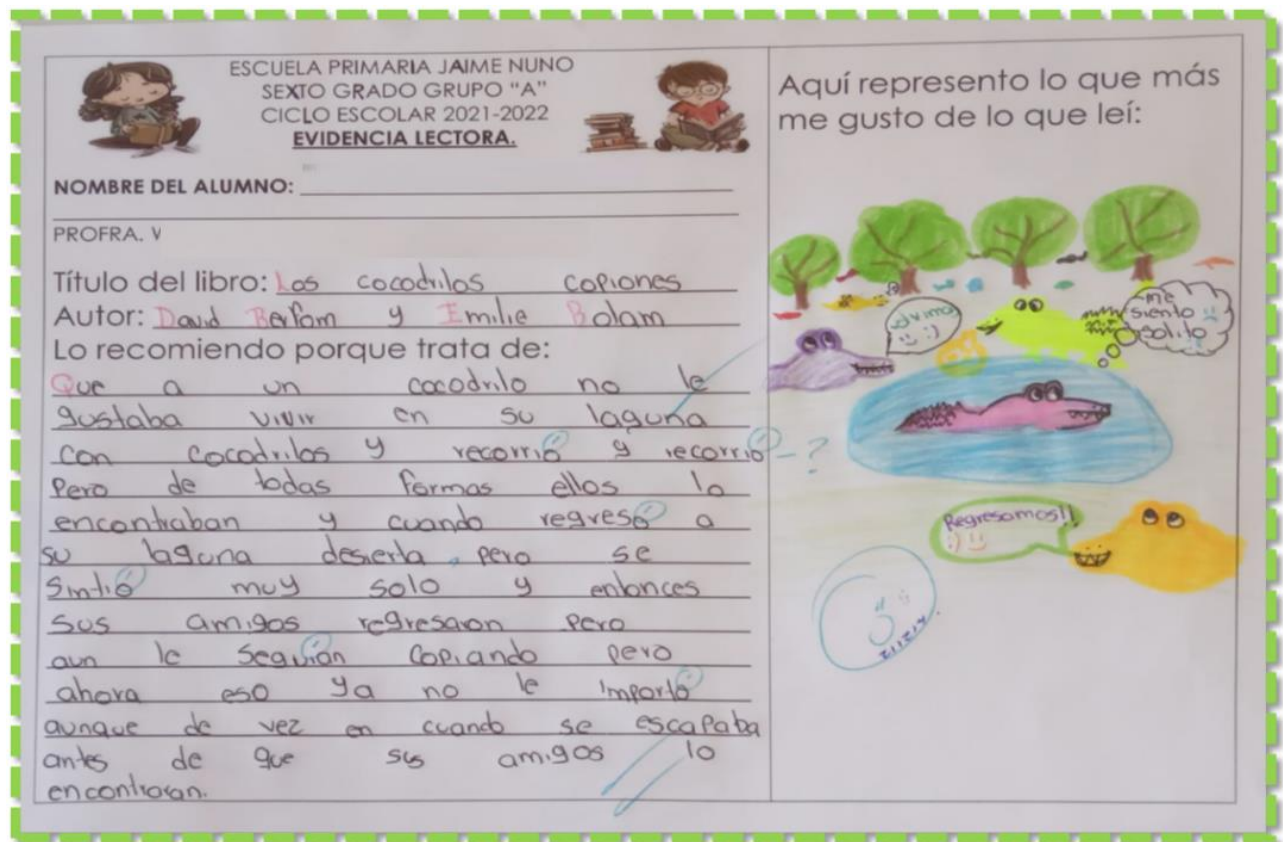 ESCUELA PRIMARIA JAIME NUNO
SEXTO GRADO GRUPO "A"
CICLO ESCOLAR 2021-2022
EVIDENCIA LECTORA.
NOMBRE DEL ALUMNO:
PROFRA. V
Título del libro: Los cocodrilos copiones
Autor: David Berfom y Emilie Bolam
Lo recomiendo porque trata de:
Que a un cocodrilo no le
gustaba vivir en su laguna
con cocodrilos y recorrió y recorrió - ?
Pero de todas formas ellos lo
encontraban y cuando regresó a
su laguna desierta, pero se
Sintió muy solo y entonces
sus amigos regresaron pero
aun le seguían copiando pero
ahora eso ya no le importó
aunque de vez en cuando se escapaba
antes de que sus amigos lo
encontraran.
Aquí represento lo que más
me gusto de lo que leí:
volvimos
:)
me
siento
solito
Regresamos!!
:)